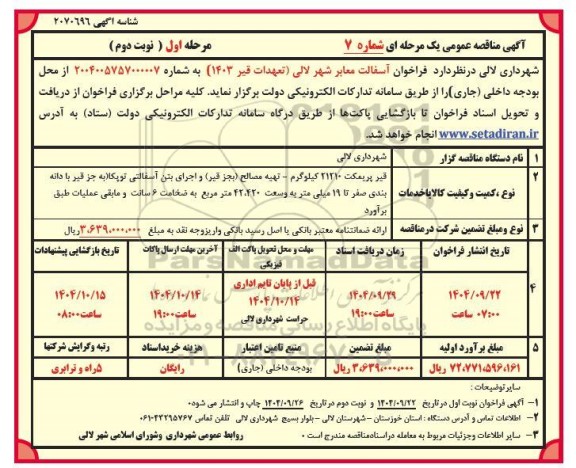 شناسه آگهی ۲۰۷۰۶۹۶
آگهی مناقصه عمومی یک مرحله ای شماره ۷ مرحله اول ( نوبت دوم )
شهرداری لالی درنظردارد فراخوان آسفالت معابر شهر لالی (تعهدات قیر ۱۴۰۳) به شماره ۲۰۰۴۰۰۵۷۵۷۰۰۰۰۰۷ از محل
بودجه داخلی (جاری)را از طریق سامانه تدارکات الکترونیکی دولت برگزار نماید. کلیه مراحل برگزاری فراخوان از دریافت
و تحویل اسناد فراخوان تا بازگشایی پاکت‌ها از طریق درگاه سامانه تدارکات الکترونیکی دولت (ستاد) به آدرس
www.setadiran.ir انجام خواهد شد.
۱ نام دستگاه مناقصه گزار شهرداری لالی
۲ نوع ،کمیت وکیفیت کالایاخدمات قیر پریمکت ۲۱۲۱۰ کیلوگرم - تهیه مصالح (بجز قیر) و اجرای بتن آسفالتی توپکا(به جز قیر با دانه
بندی صفر تا ۱۹ میلی متر به وسعت ۴۲،۴۲۰ متر مربع به ضخامت ۶ سانت و مابقی عملیات طبق
برآورد
۳ نوع ومبلغ تضمین شرکت درمناقصه ارائه ضمانتنامه معتبر بانکی یا اصل رسید بانکی واریزوجه نقد به مبلغ ۳،۶۳۹،۰۰۰،۰۰۰ریال
۴ تاریخ انتشار فراخوان زمان دریافت اسناد مهلت و محل تحویل پاکت الف فیزیکی آخرین مهلت ارسال پاکات تاریخ بازگشایی پیشنهادات
۱۴۰۴/۰۹/۲۲ ساعت ۰۷:۰۰ ۱۴۰۴/۰۹/۲۹ ساعت۱۹:۰۰ قبل از پایان تایم اداری ۱۴۰۴/۱۰/۱۴ حراست شهرداری لالی ۱۴۰۴/۱۰/۱۴ ساعت۱۹:۰۰ ۱۴۰۴/۱۰/۱۵ ساعت۰۸:۰۰
۵ مبلغ برآورد اولیه مبلغ تضمین منبع تامین اعتبار هزینه خریداسناد رتبه وگرایش شرکتها
۷۲،۷۷۱،۵۹۶،۱۶۱ ریال ۳،۶۳۹،۰۰۰،۰۰۰ ریال بودجه داخلی (جاری) رایگان ۵راه و ترابری
سایرتوضیحات :
۱- آگهی فراخوان نوبت اول درتاریخ ۱۴۰۴/۰۹/۲۲ و نوبت دوم در تاریخ ۱۴۰۴/۰۹/۲۶ چاپ و انتشار می شود.
۲- اطلاعات تماس و آدرس دستگاه : استان خوزستان -شهرستان لالی -بلوار بسیج شهرداری لالی تلفن تماس ۴۳۲۹۵۷۶۷-۰۶۱
۳- سایر اطلاعات وجزئیات مربوط به معامله دراسنادمناقصه مندرج است . روابط عمومی شهرداری وشورای اسلامی شهر لالی
ParsNamadData
پایگاه اطلاع رسانی مناقصه و مزایده